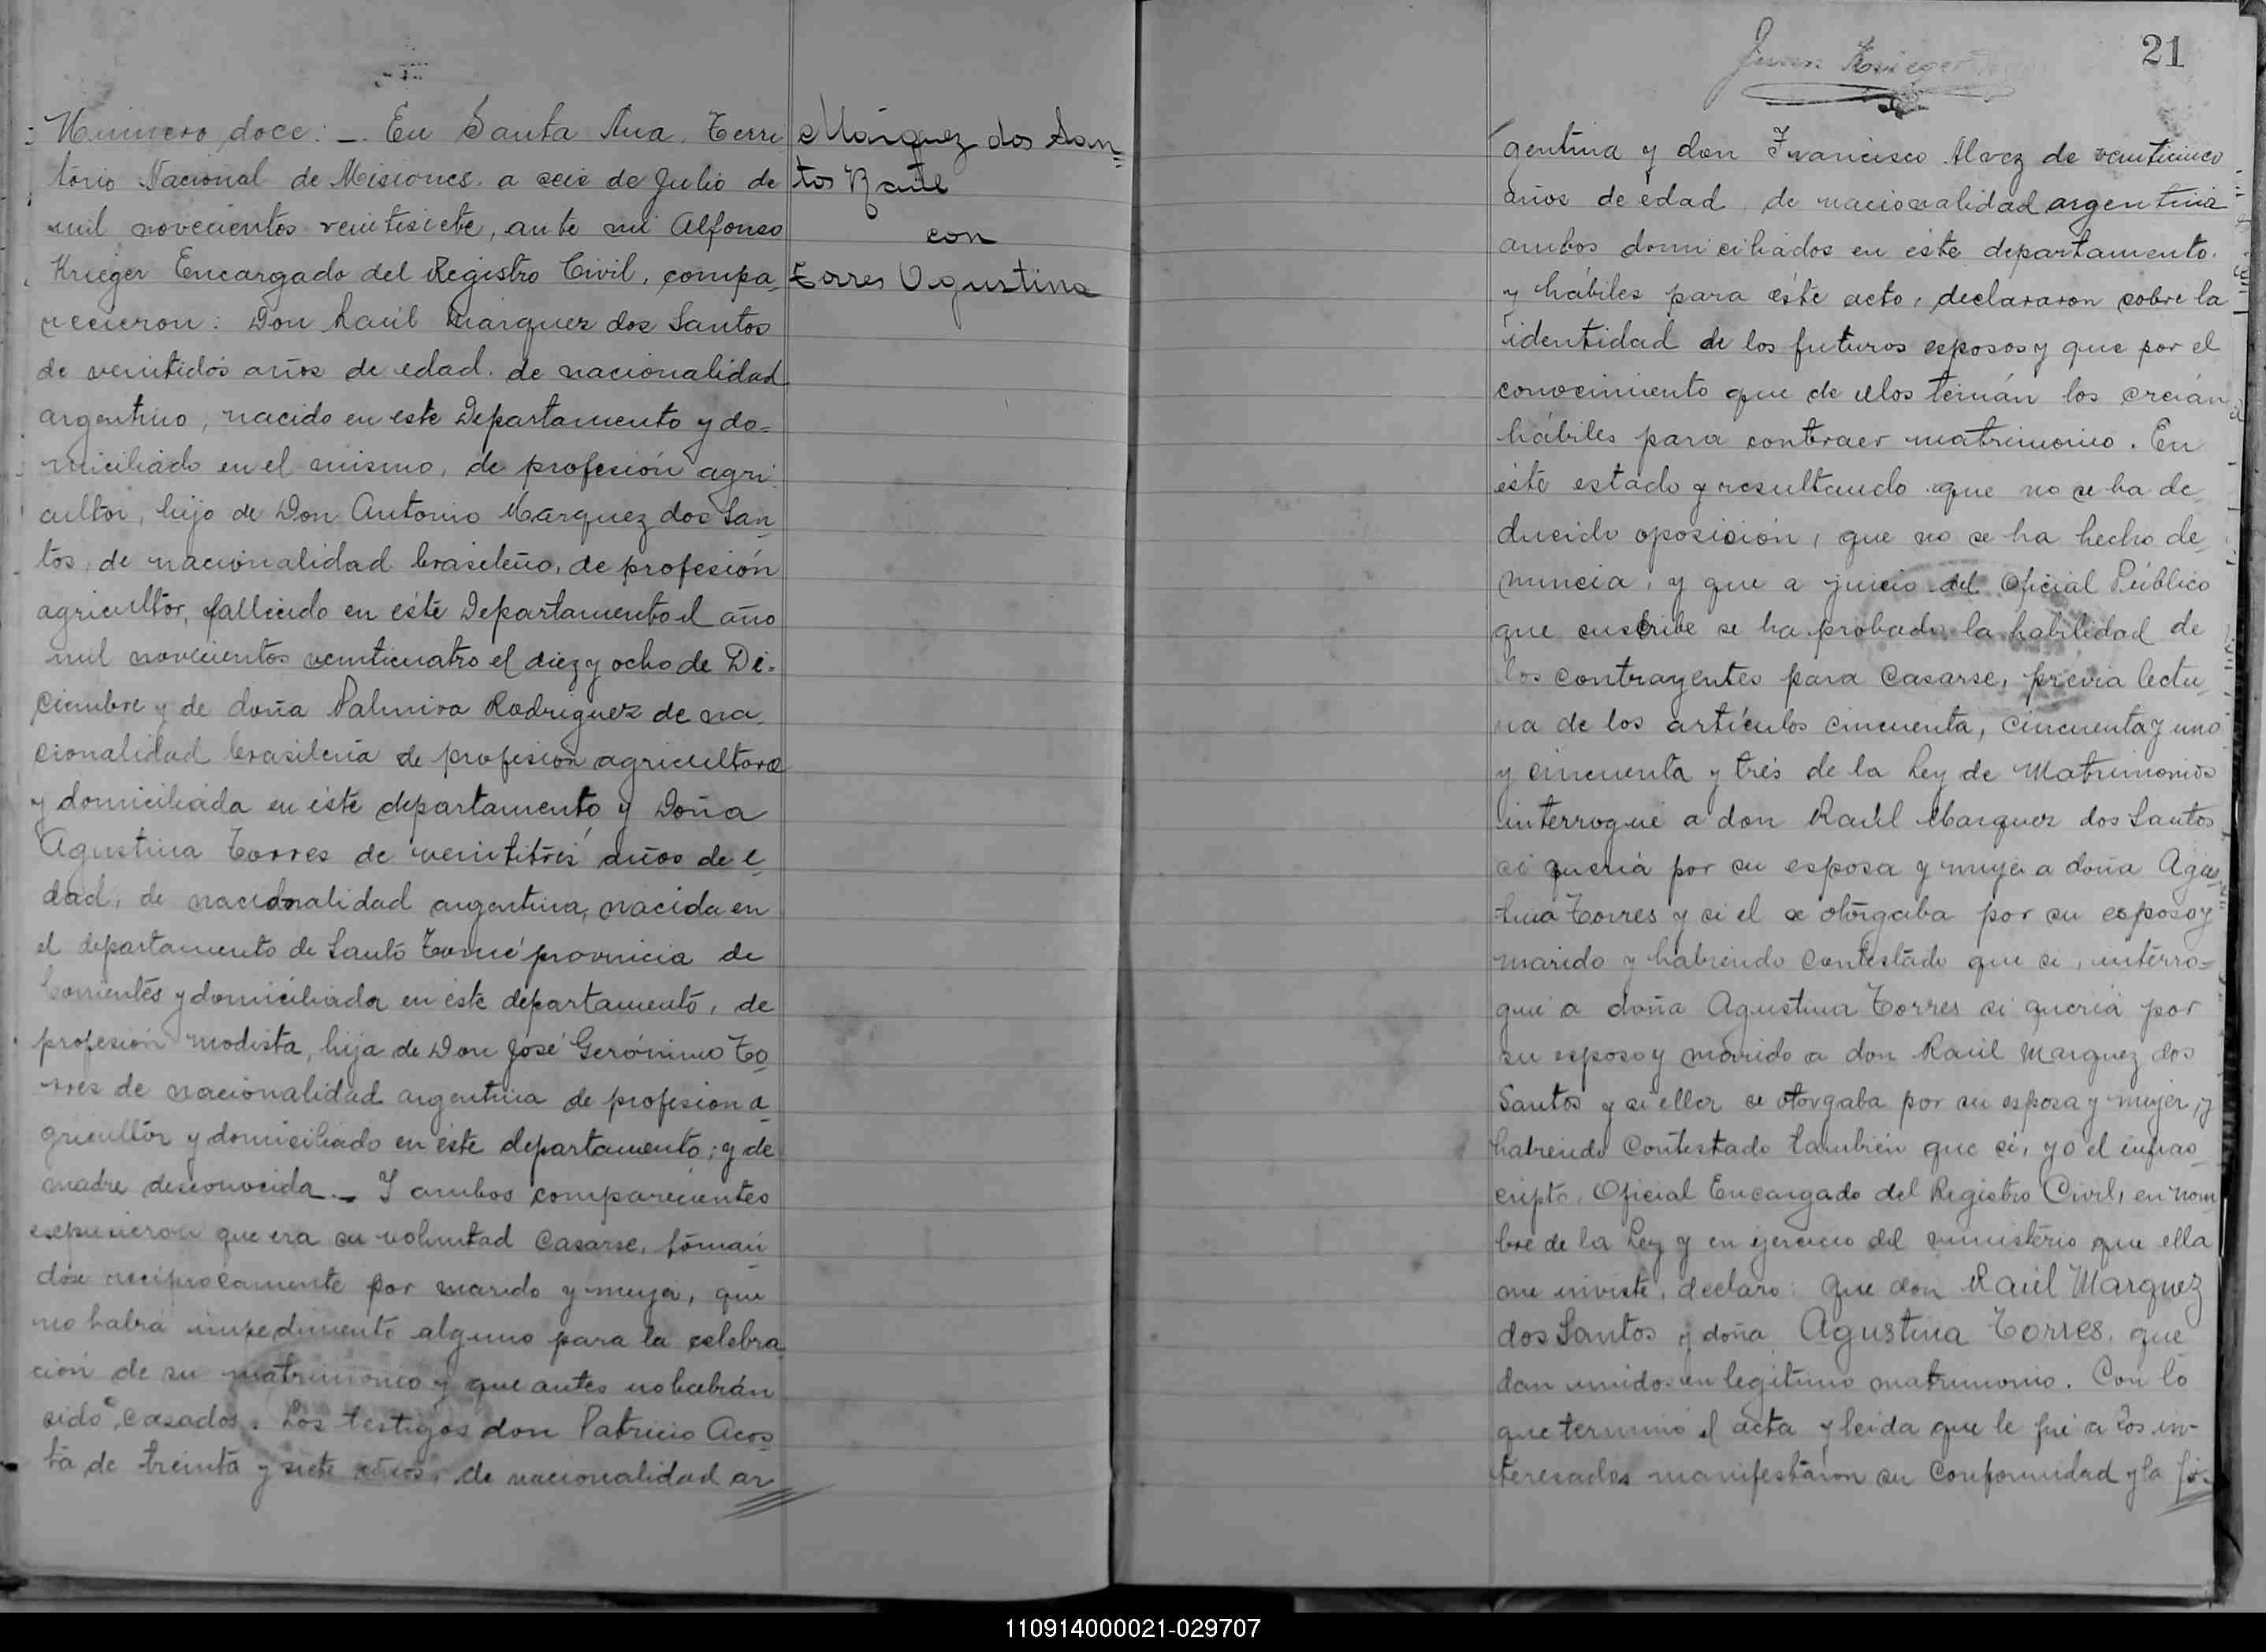 Número doce: _. En Santa Ana, Terri
torio Nacional de Misiones, a seis de Julio de
mil novecientos veintisiete, ante mi Alfonso
Krieger Encargado del Registro Civil, compa_
recieron: Don Raúl Marquez dos Santos
de veintidós años de edad, de nacionalidad
argentino, nacido en este Departamento y do=
miciliado en el mismo, de profesión agri_
cultor, hijo de Don Antonio Marquez dos San_
tos, de nacionalidad brasileño, de profesión
agricultor, fallecido en éste Departamento el año
mil novecientos veinticuatro el diez y ocho de Di=
ciembre y de doña Palmira Rodriguez de na_
cionalidad brasileña de profesión agricultora
y domiciliada en éste departamento y Doña
Agustina Torres de veintitrés años de e_
dad, de nacionalidad argentina, nacida en
el departamento de Santo Tomé provincia de
Corrientes y domiciliada en éste departamento, de
profesión modista, hija de Don José Gerónimo To_
rres de nacionalidad argentina de profesion a_
gricultor y domiciliado en éste departamento; y de
madre desconocida._ Y ambos comparecientes
expusieron que era su voluntad casarse, tóman_
dose reciprocamente por marido y mujer, que
no habia impedimento alguno para la celebra_
ción de su matrimonio y que antes no habián
sido casados. Los testigos don Patricio Acos_
ta de treinta y siete años, de nacionalidad ar
Márquez dos San=
tos Raúl
con
Torres Agustina
Juan Krieger
21
gentina y don Francisco Alvez de veinticinco
años de edad, de nacionalidad argentina
ambos domiciliados en éste departamento,
y hábiles para éste acto, declararon sobre la
identidad de los futuros esposos y que por el
conocimiento que de ellos tenián los creián
hábiles para contraer matrimonio. En
éste estado y resultando que no se ha de_
ducido oposición, que no se ha hecho de_
nuncia, y que a juicio del Oficial Público
que suscribe se ha probado la habilidad de
los contrayentes para casarse, previa lectu_
ra de los artículos cincuenta, cincuenta y uno
y cincuenta y trés de la Ley de Matrimonio
interrogué a don Raúl Marquez dos Santos
si queriá por su esposa y mujer a doña Agus_
tina Torres y si el se otorgaba por su esposo y
marido y habiendo contestado que si, interro=
gué a doña Agustina Torres si queriá por
su esposo y marido a don Raúl Marquez dos
Santos y si ella se otorgaba por su esposa y mujer, y
habiendo contestado también que sí, yo el infras_
cripto, Oficial Encargado del Registro Civil, en nom_
bre de la Ley y en ejercicio del ministério que ella
me inviste, declaro: Que don Raúl Marquez
dos Santos y doña Agustina Torres, que
dan unidos en legitimo matrimonio. Con lo
que terminó el acta y leida que le fué a los in-
teresados manifestaron su conformidad y la fir=
110914000021-029707